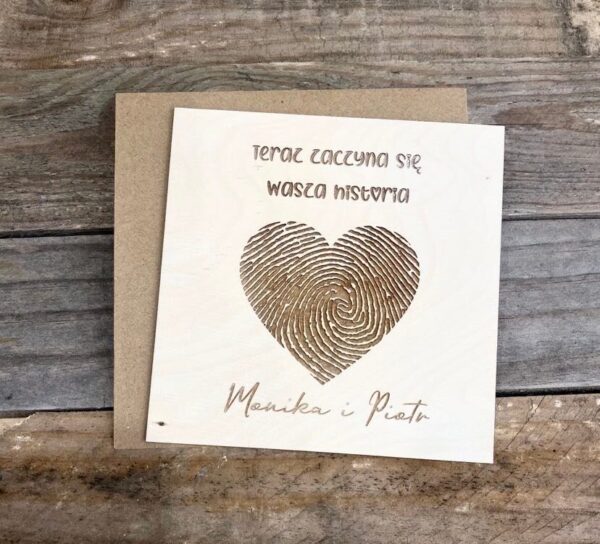 Teraz zaczyna się
wasza historia
Monika i Piotr